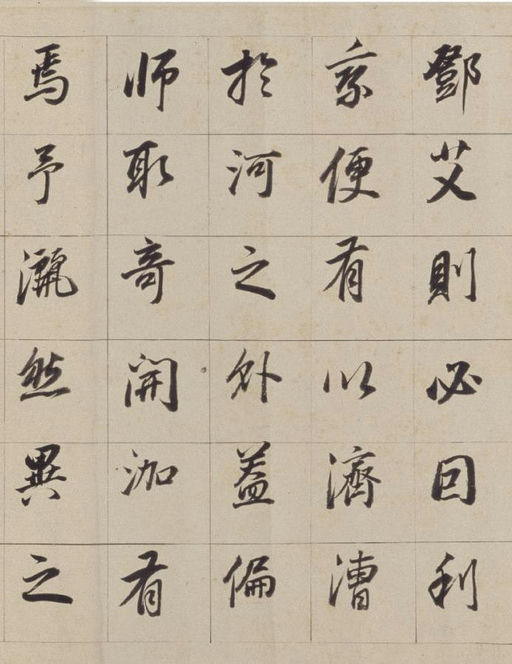 鄧艾則必因利
乘便有以濟漕
於河之外蓋偏
師取奇開泇有
焉予灑然異之